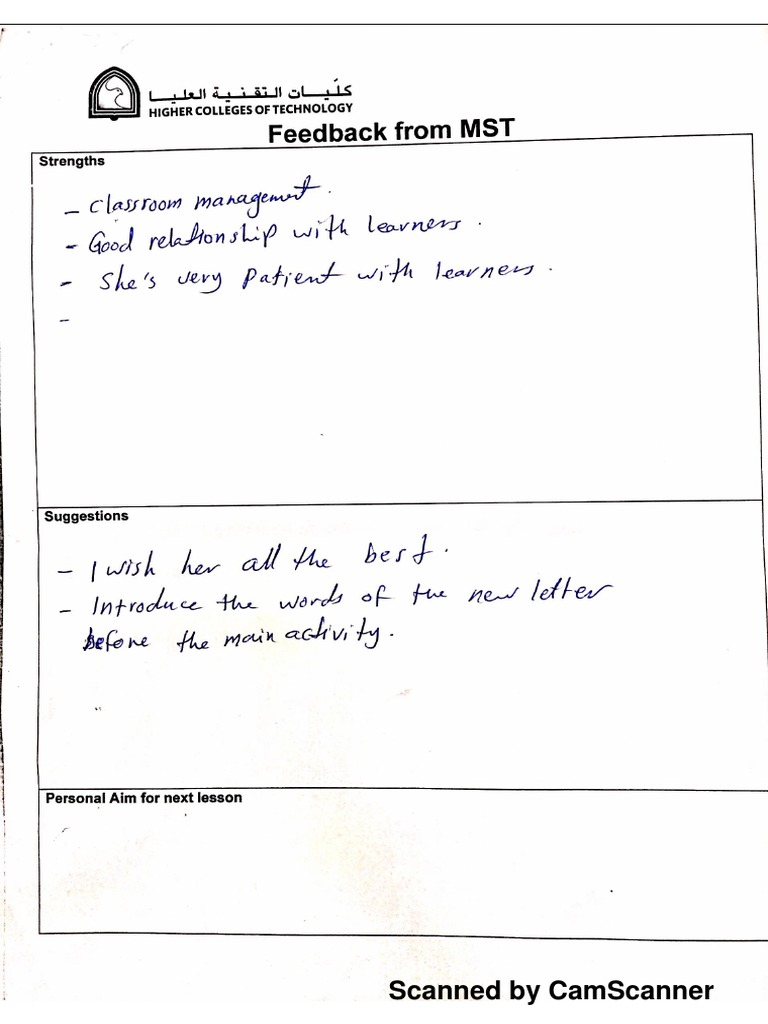 كلّيات التقنية العليا
HIGHER COLLEGES OF TECHNOLOGY
Feedback from MST
Strengths
- Classroom management.
- Good relationship with learners.
- She's very patient with learners.
-
Suggestions
- I wish her all the best.
- Introduce the words of the new letter
before the main activity.
Personal Aim for next lesson
Scanned by CamScanner